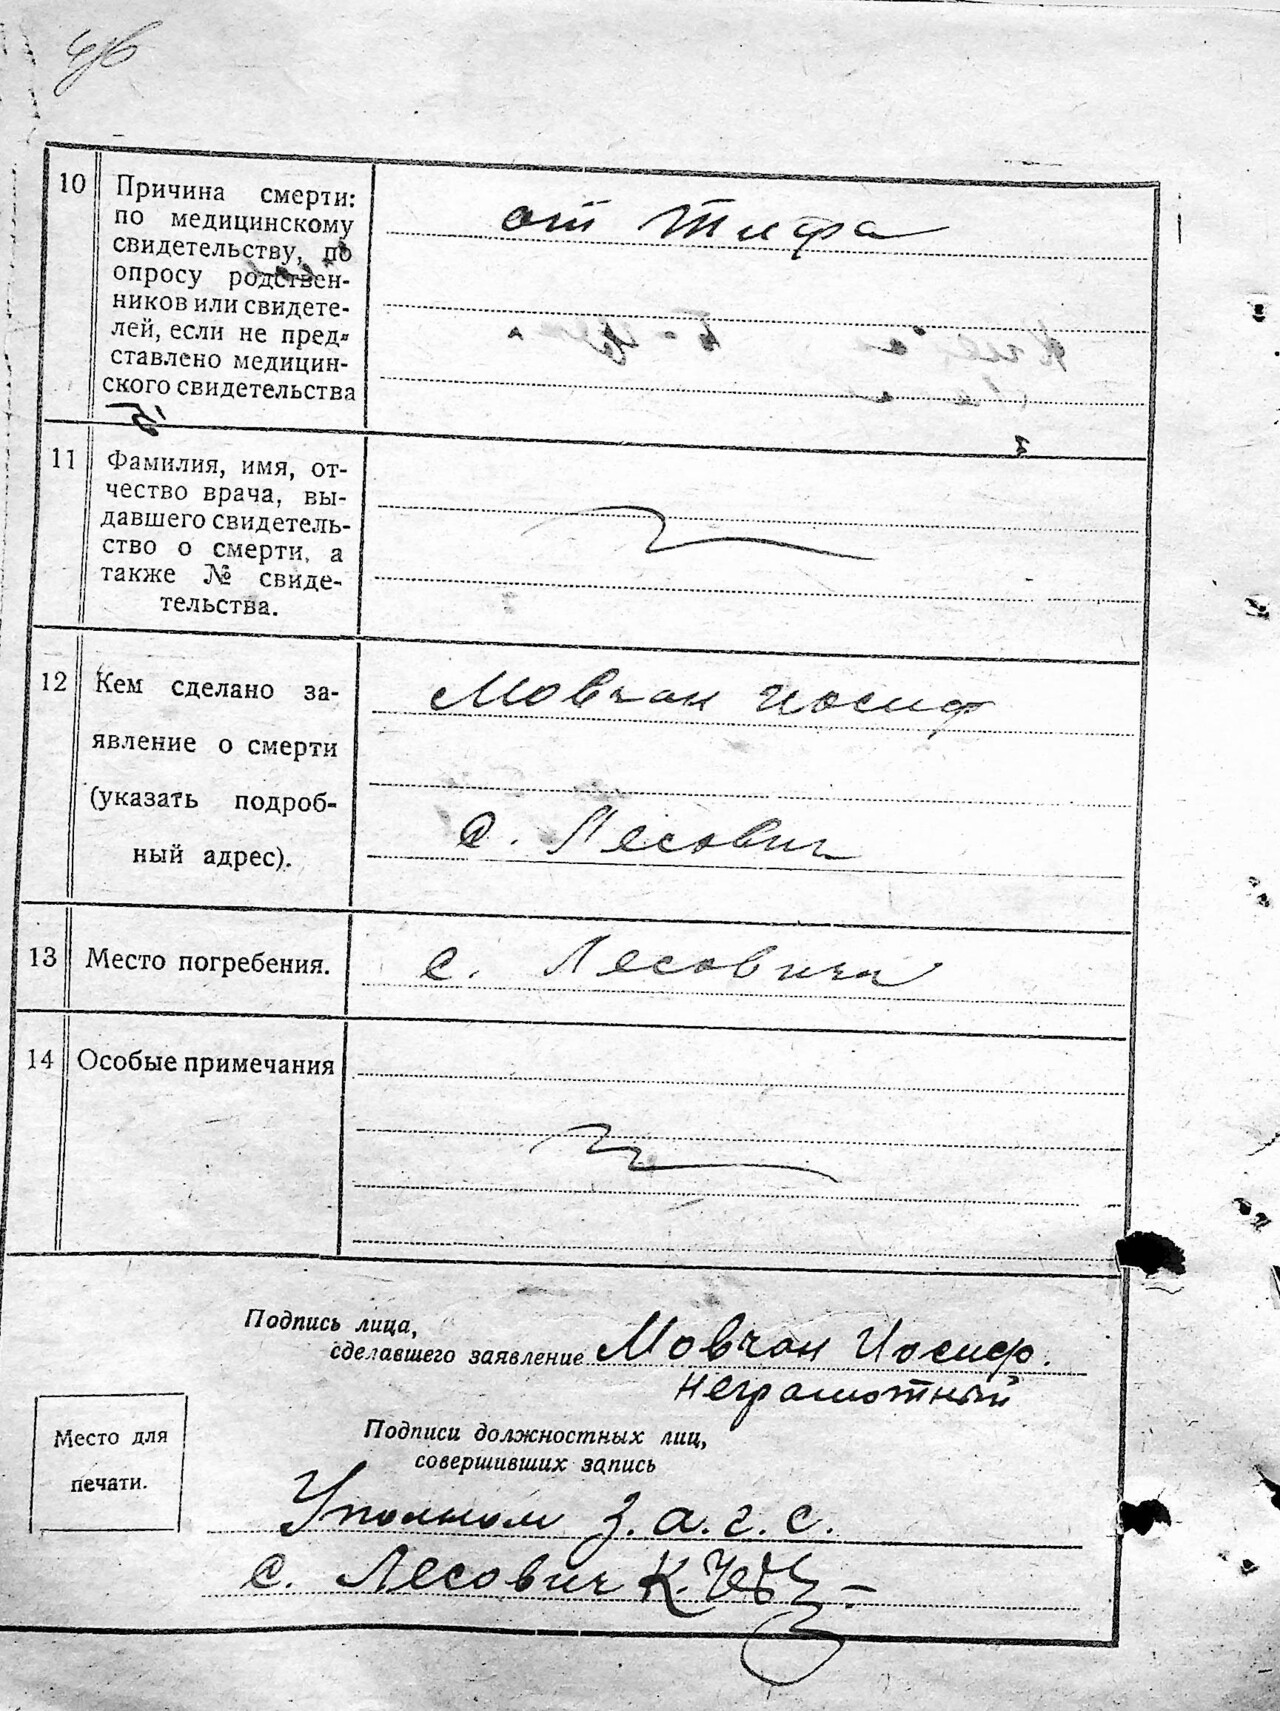 10 Причина смерти:
по медицинскому
свидетельству, по
опросу родствен-
ников или свидете-
лей, если не пред-
ставлено медицин-
ского свидетельства
от тифа
11 Фамилия, имя, от-
чество врача, вы-
давшего свидетель-
ство о смерти, а
также № свиде-
тельства.
12 Кем сделано за-
явление о смерти
(указать подроб-
ный адрес).
Мовчан Иосиф
с. Лесович
13 Место погребения.
с. Лесовичи
14 Особые примечания
Подпись лица,
сделавшего заявление Мовчан Иосиф.
неграмотный
Подписи должностных лиц,
совершивших запись
Место для
печати.
Уполном з.а.г.с.
с. Лесович К.